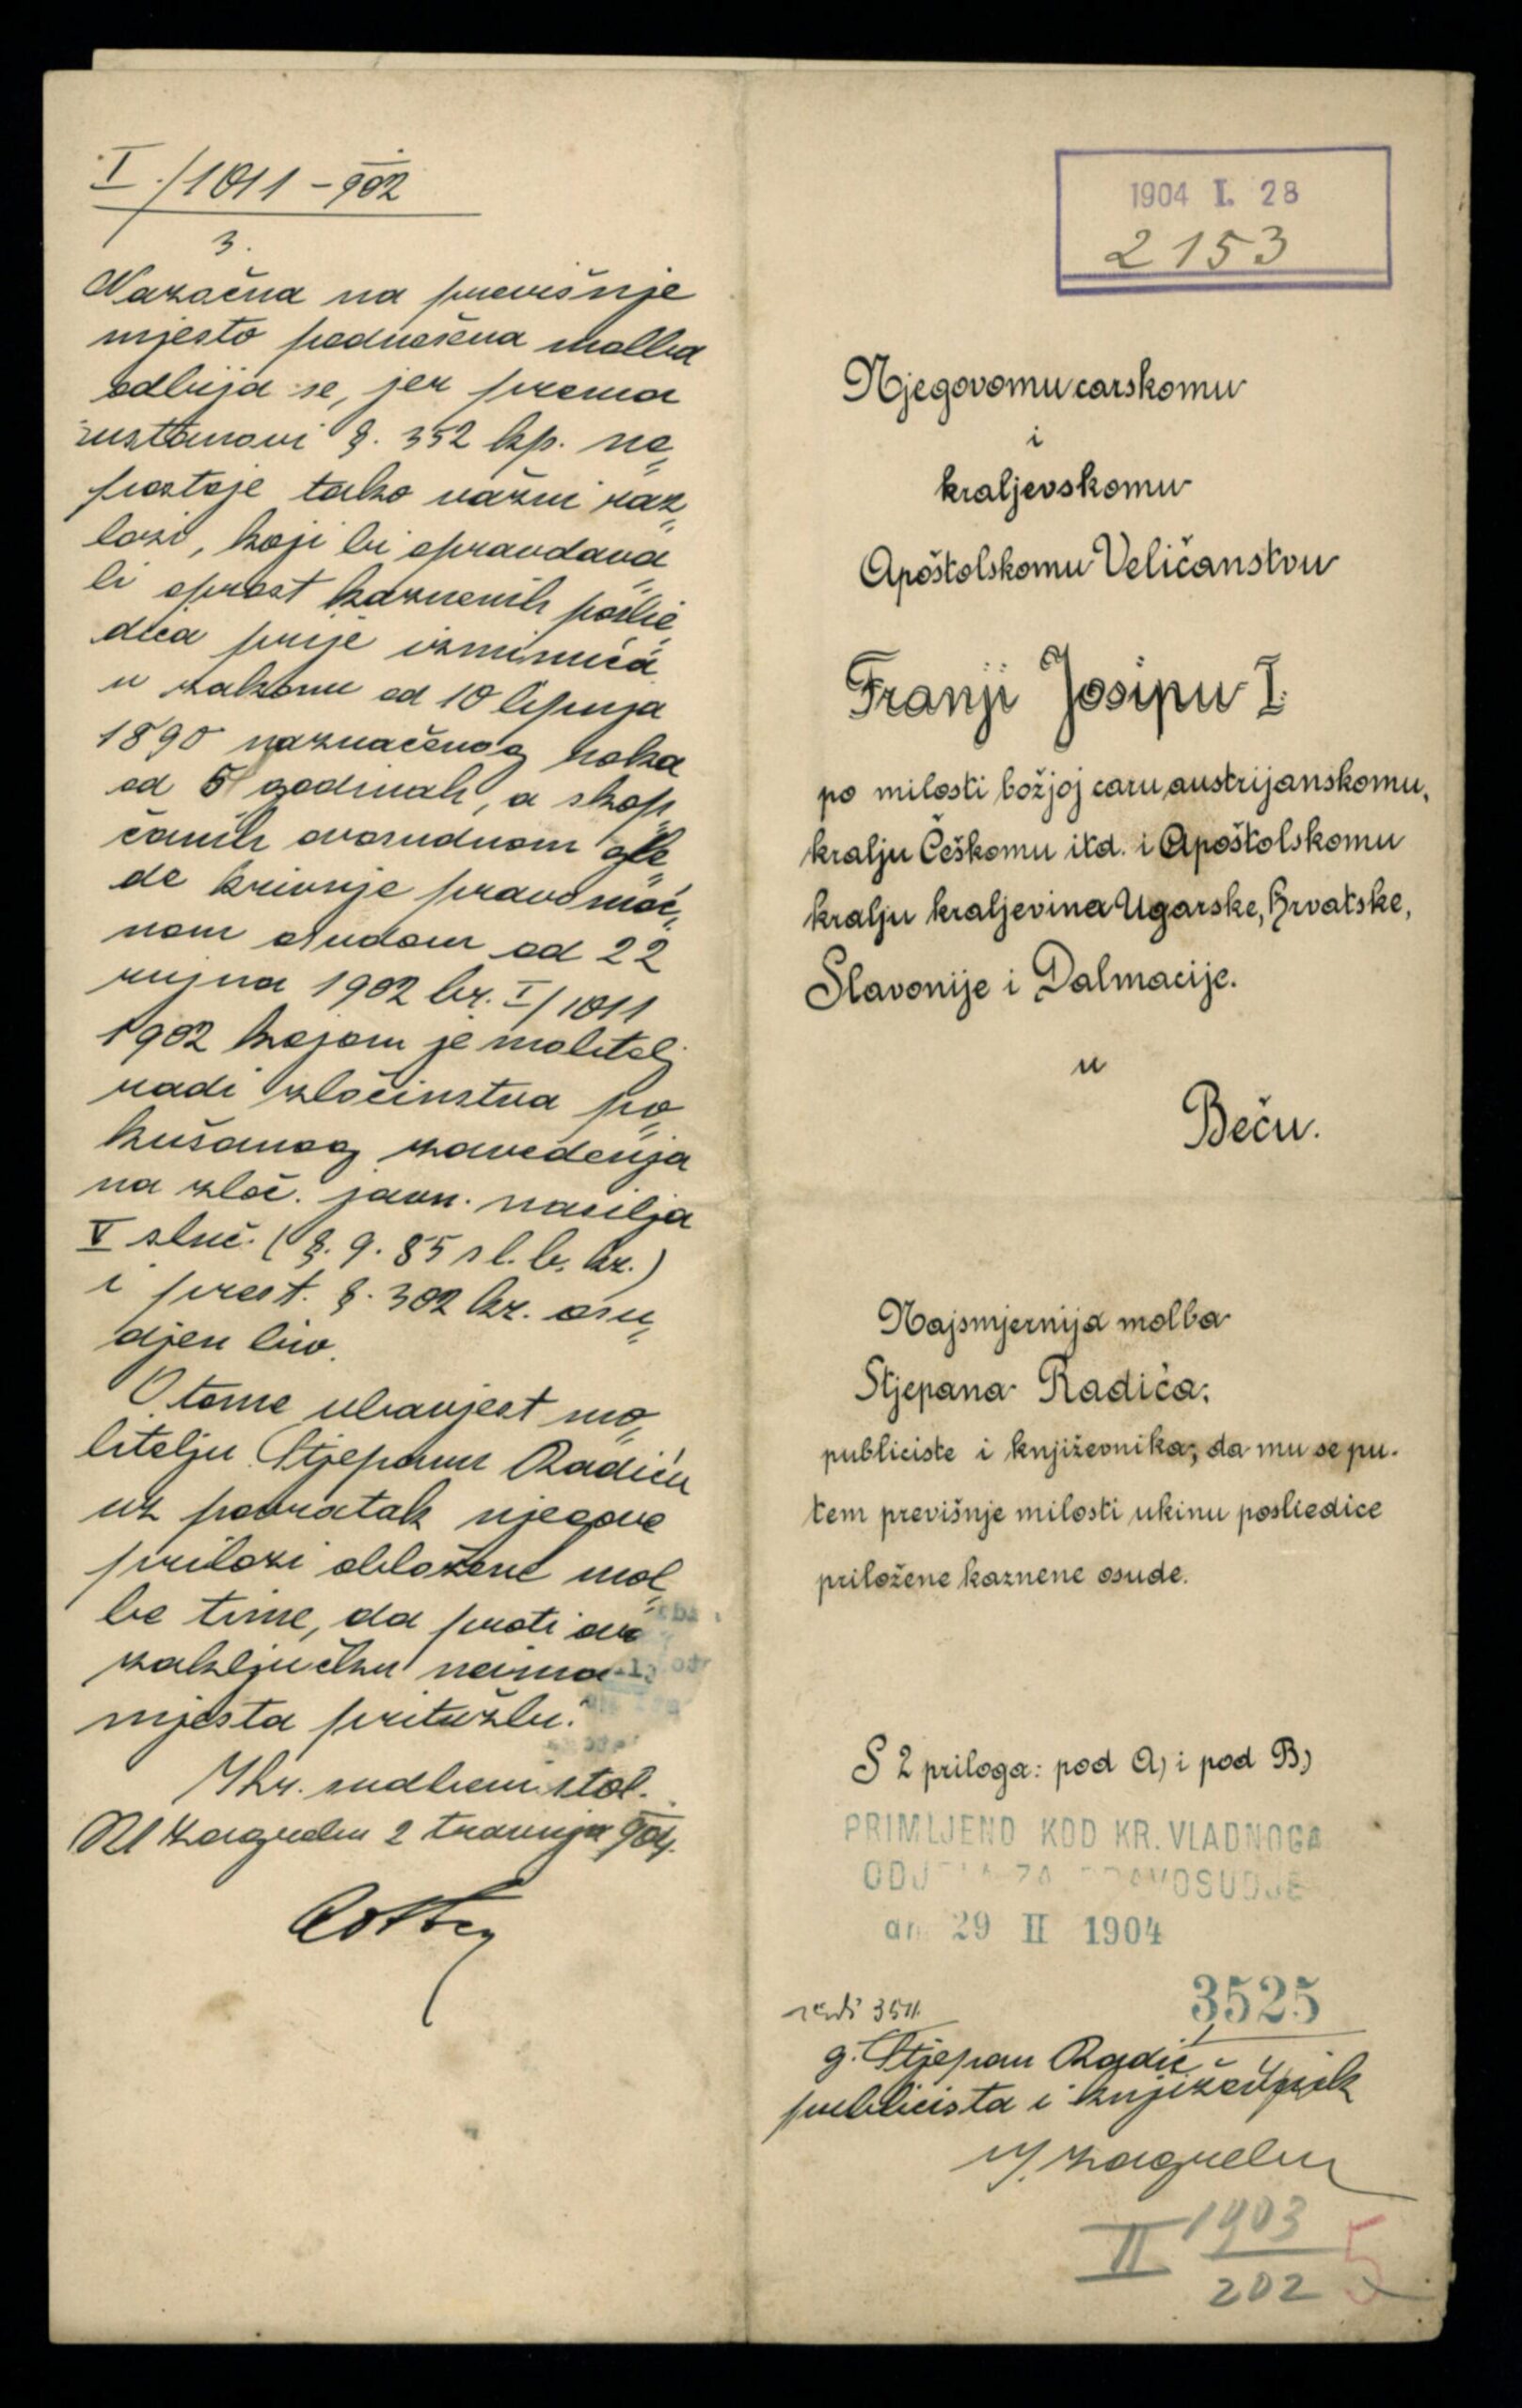 I./1011-902
3.
Nazočna na previšnje
mjesto podnešena molba
odbija se, jer prema
ustanovi §. 352 kp. ne„
postoje tako važni raz„
lozi, koji bi opravdava„
li oprost kaznenih poslje„
dica prije izminuća
u zakonu od 10 lipnja
1890 naznačenog roka
od 5 godinah, a skop„
čanih ovosudnom gle„
de krivnje pravomoć„
nom osudom od 22
rujna 1902 br. I/1011
1902 kojom je molitelj
radi zločinstva po„
kušanog zavedenja
na zloč. javn. nasilja
V sluč. (§. 9. 85 sl. b. kz.)
i prest. §. 302 kz. osu„
djen bio.
O tome ubavjest mo„
litelju Stjepanu Radiću
uz povratak njegove
prilozi obložene mol„
be time, da proti ovo
zaključku neima
mjesta pritužbi.
Kr. sudbeni stol.
U Zagrebu 2 travnja 904.
1904 I. 28
2153
Njegovomu carskomu
i
kraljevskomu
Apoštolskomu Veličanstvu
Franji Josipu I.
po milosti božjoj caru austrijanskomu,
kralju Češkomu itd. i Apoštolskomu
kralju kraljevina Ugarske, Hrvatske,
Slavonije i Dalmacije.
u
Beču.
Najsmjernija molba
Stjepana Radića,
publiciste i književnika, da mu se pu-
tem previšnje milosti ukinu posliedice
priložene kaznene osude.
S 2 priloga: pod A) i pod B)
PRIMLJENO KOD KR. VLADNOGA
ODJELA ZA PRAVOSUDJE
dn. 29 II 1904
3525
3511
g. Stjepan Radić
publicista i književnik
U Zagrebu
II 1903
202
5